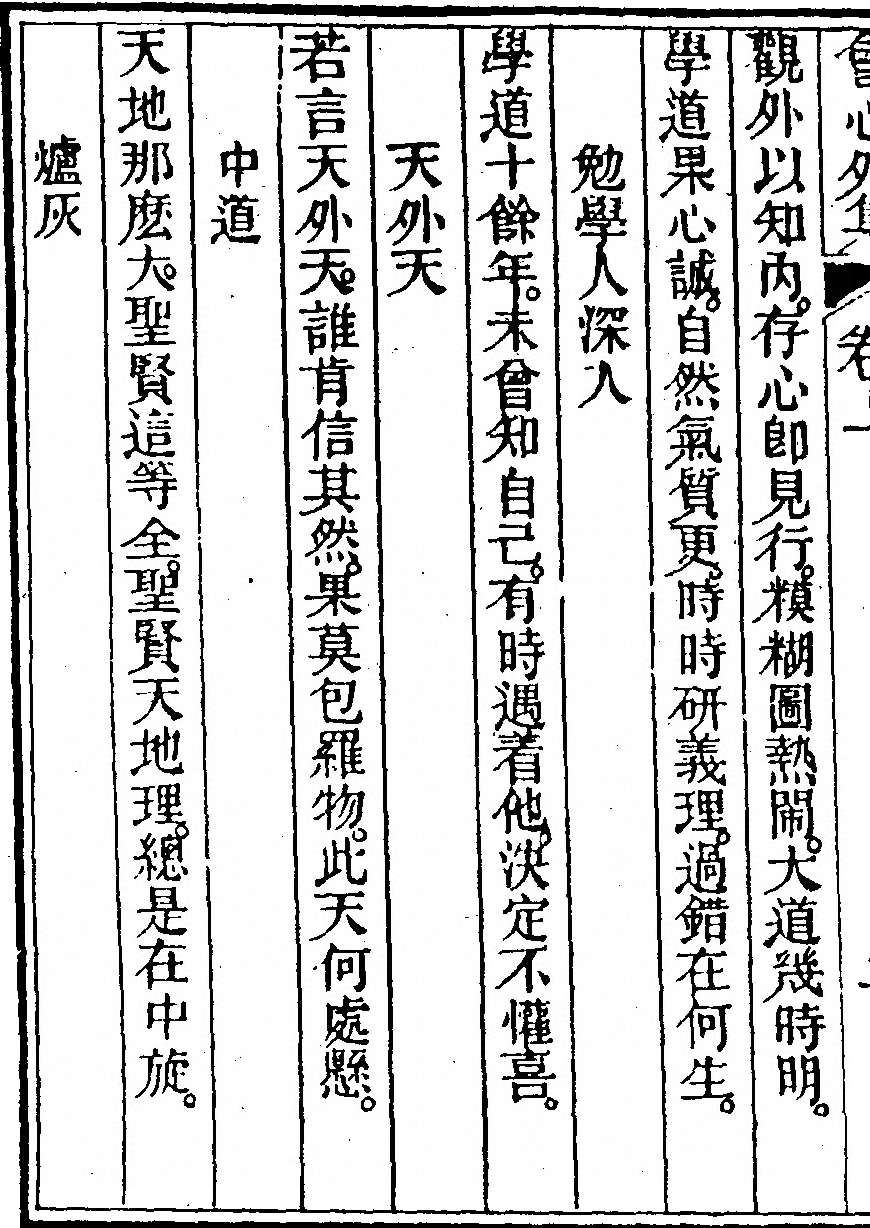 會心外集 卷一
觀外以知內。存心即見行。糢糊圖熱鬧。大道幾時明。
學道果心誠。自然氣質更。時時研義理。過錯在何生。
勉學人深入
學道十餘年。未曾知自己。有時遇着他。決定不懽喜。
天外天
若言天外天。誰肯信其然。果莫包羅物。此天何處懸。
中道
天地那麽大。聖賢這等全。聖賢天地理。總是在中旋。
爐灰